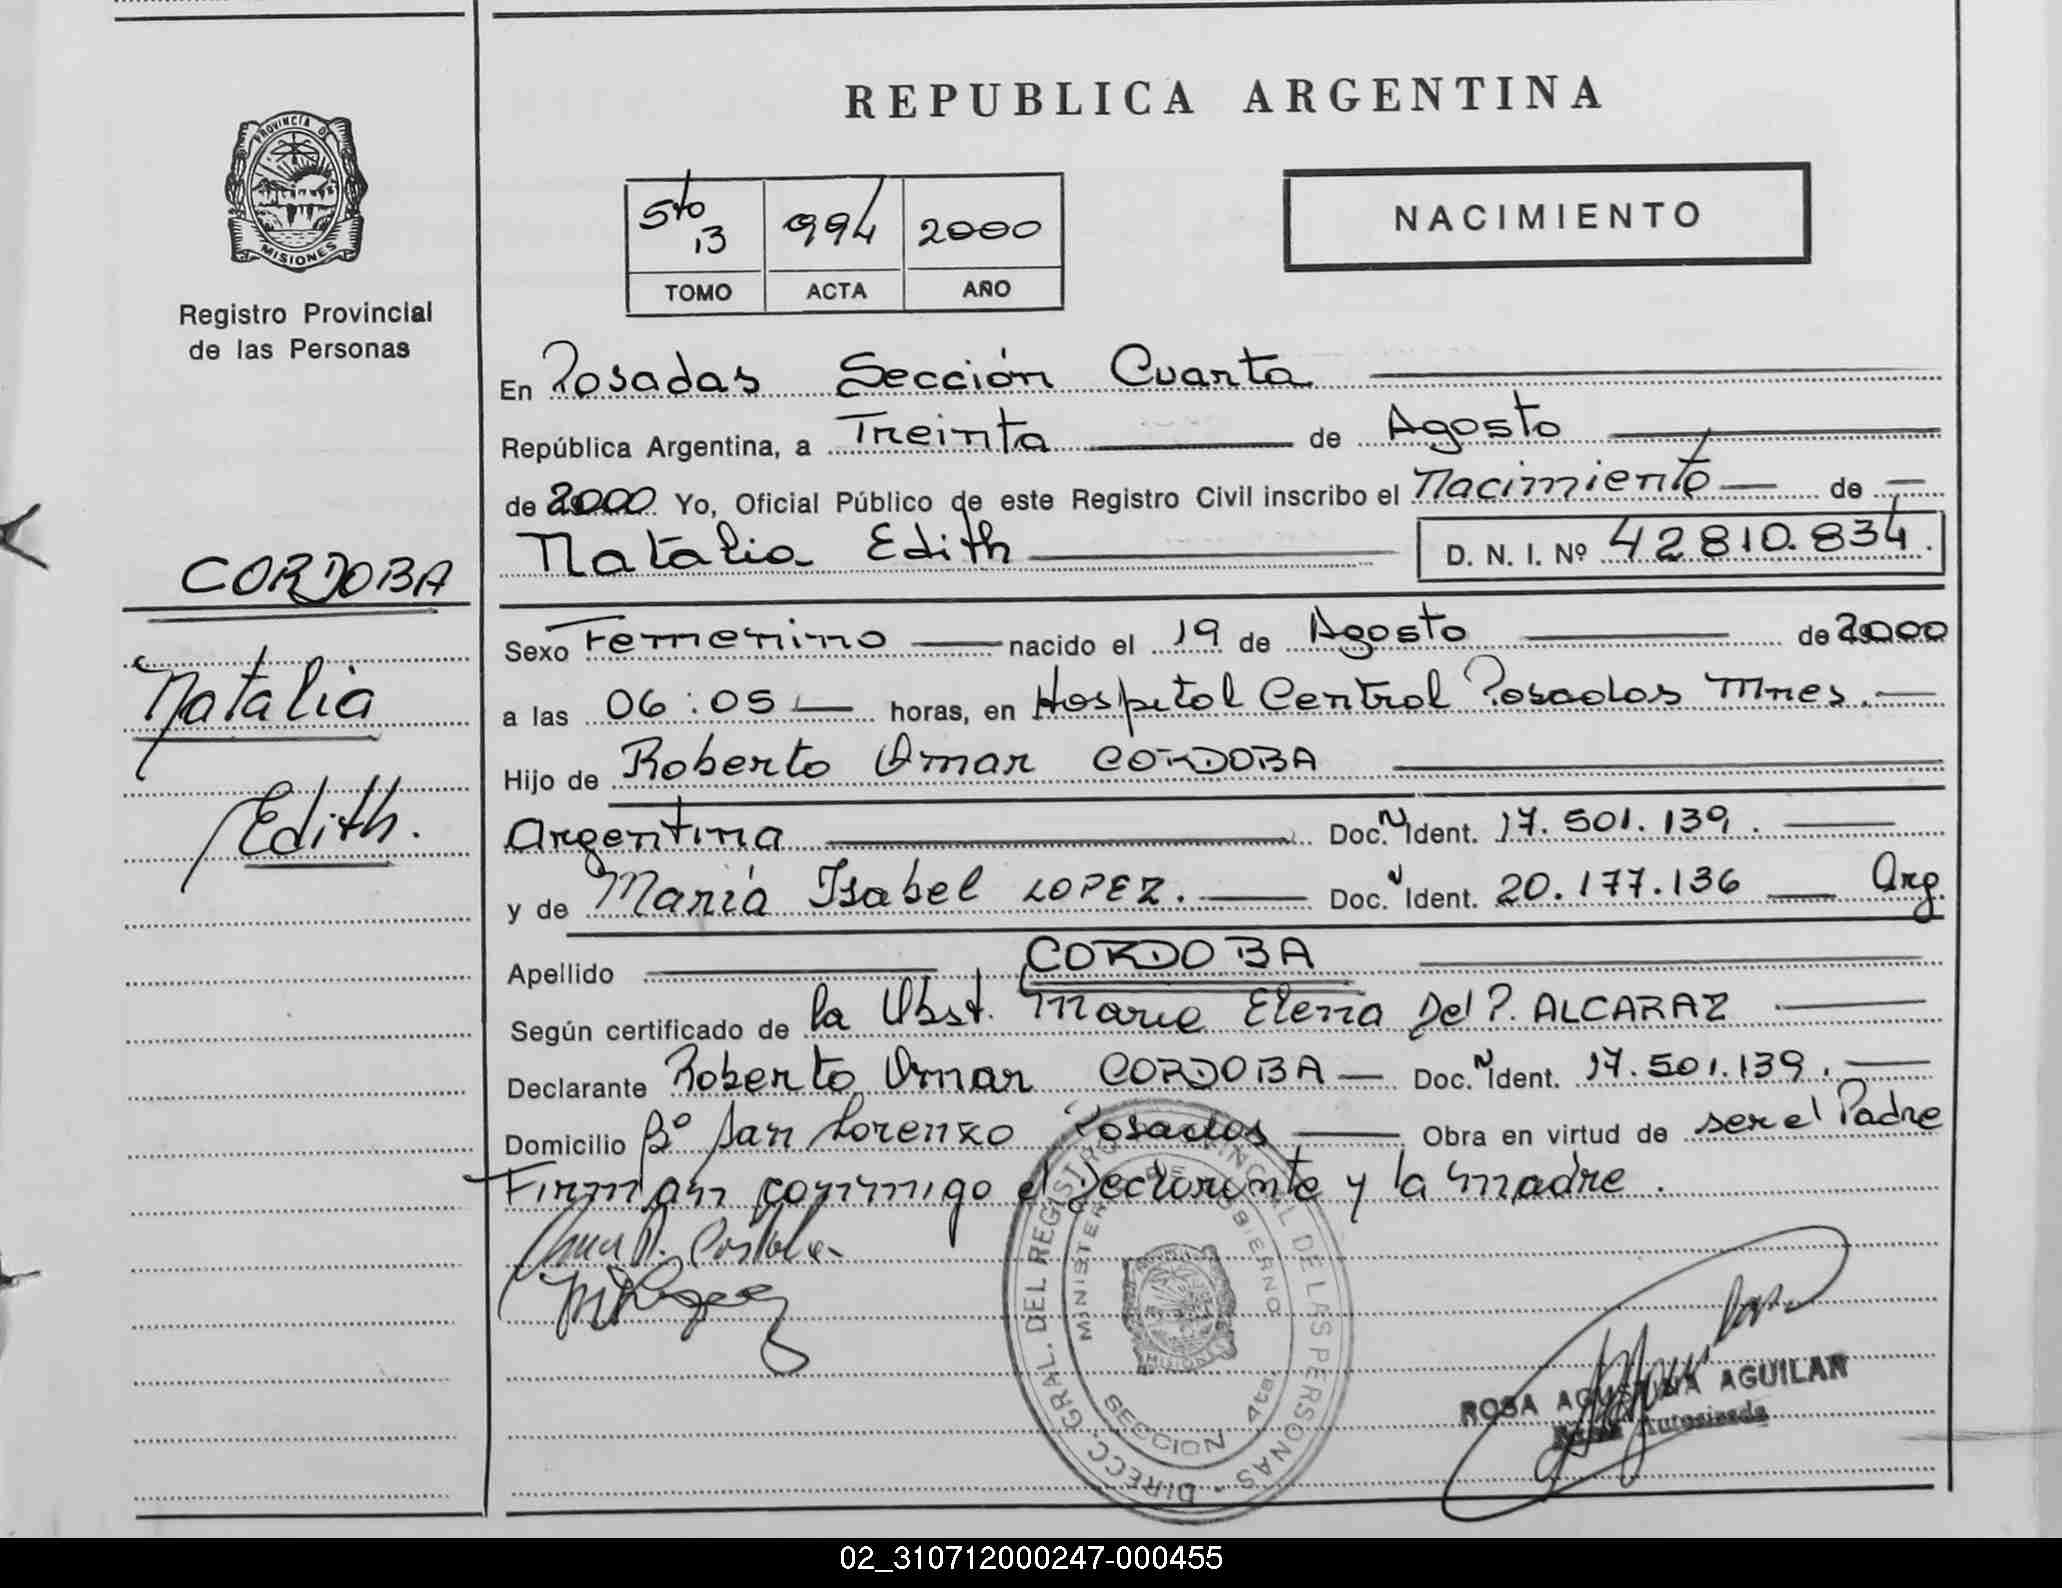 PROVINCIA DE
MISIONES
Registro Provincial
de las Personas
CORDOBA
Natalia
Edith.
REPUBLICA ARGENTINA
5to 13 994 2000
TOMO ACTA AÑO
NACIMIENTO
En Posadas Sección Cuarta
República Argentina, a Treinta de Agosto
de 2000 Yo, Oficial Público de este Registro Civil inscribo el Nacimiento de
Natalia Edith D. N. I. Nº 42810.834.
Sexo Femenino nacido el 19 de Agosto de 2000
a las 06:05 horas, en Hospital Central Posadas Mnes.
Hijo de Roberto Omar CORDOBA
Argentina Doc. N Ident. 17.501.139.
y de María Isabel LOPEZ. Doc. N Ident. 20.177.136 Arg.
Apellido CORDOBA
Según certificado de la Obst. Maria Elena Del P. ALCARAZ
Declarante Roberto Omar CORDOBA Doc. N Ident. 17.501.139.
Domicilio Bº San Lorenzo Posadas Obra en virtud de ser el Padre
Firman conmigo el Declarante y la madre.
DIRECC. GRAL. DEL REGISTRO PROVINCIAL DE LAS PERSONAS
MINISTERIO DE GOBIERNO
MISIONES
SECCION 4ta
ROSA AGUSTINA AGUILAR
Autorizada
02_310712000247-000455